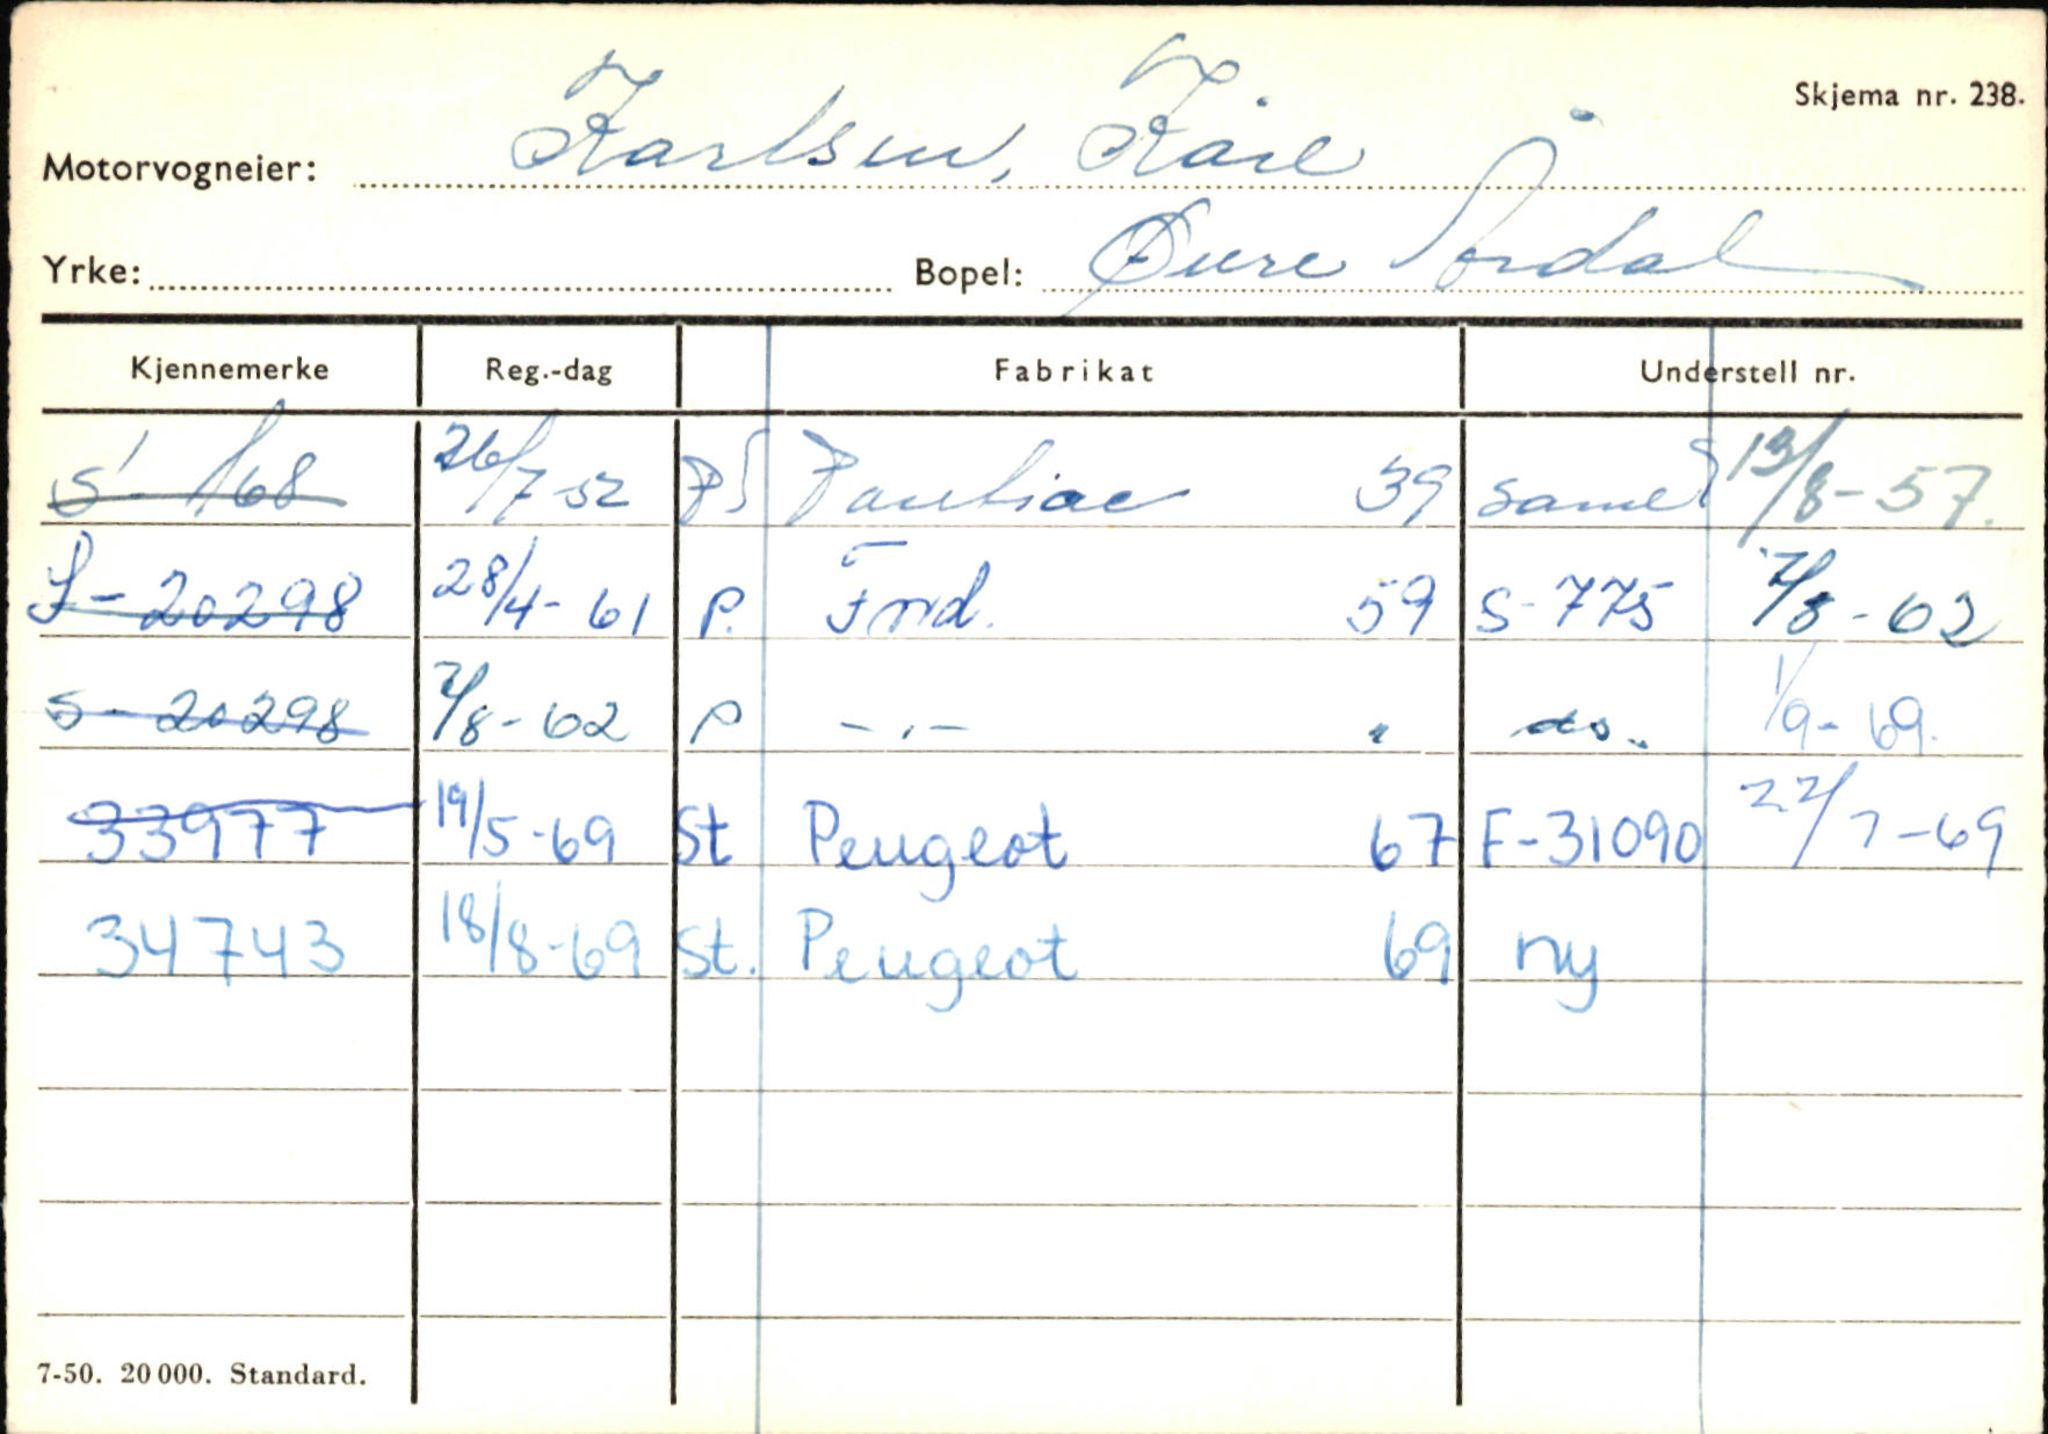 Skjema nr. 238.
Motorvogneier: Karlsen, Kåre
Yrke: Bopel: Øvre Årdal
Kjennemerke Reg.-dag Fabrikat Understell nr.
S- 168 26/7-52 Pontiac 39 samel 13/8-57.
S-20298 28/4-61 P. Ford. 59 S-775 7/8-62
S-20298 7/8-62 P -"- " do. 1/9-69.
33977 19/5-69 St Peugeot 67 F-31090 22/7-69
34743 18/8-69 St. Peugeot 69 ny
7-50. 20 000. Standard.